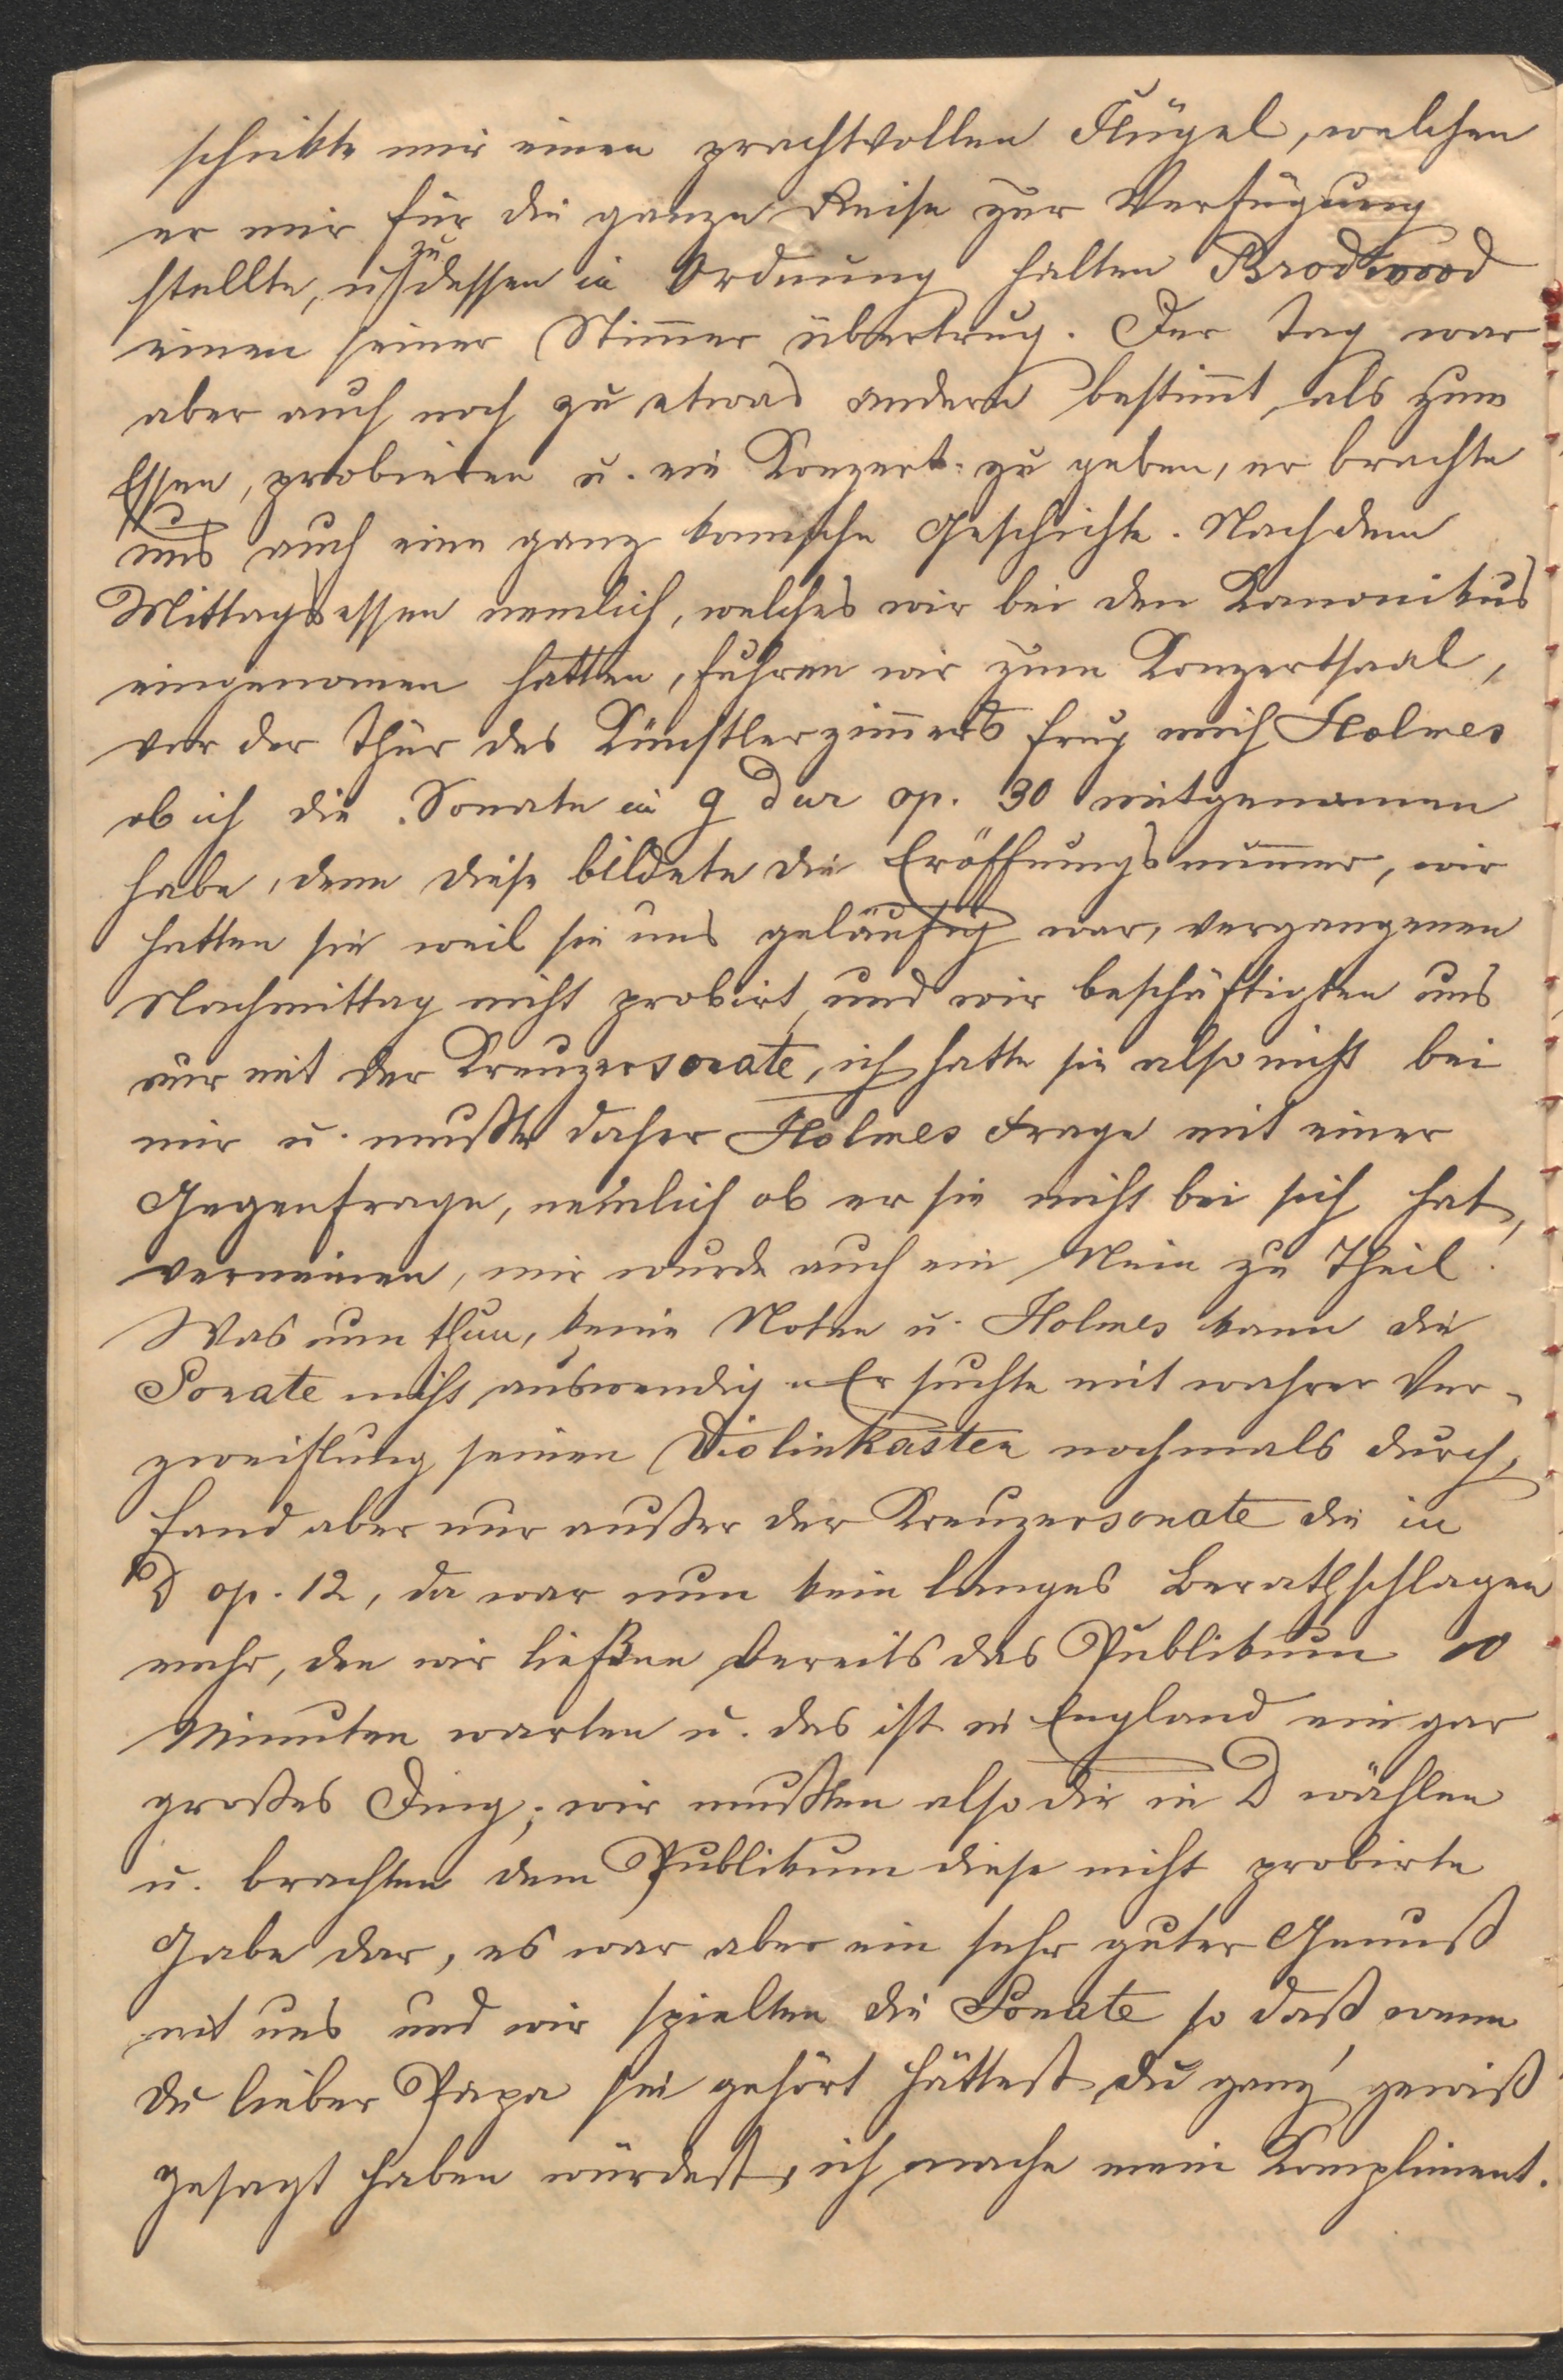 schickte mir einen prachtvollen Flügel, welchen
er mir für die ganze Reise zur Verfügung
stellte, u. zu dessen in Ordnung halten Brodwood
einen seiner Stimmer übertrug. Der Tag war
aber auch noch zu etwas andern bestimmt, als zum
Essen, probieren u. ein Konzert zu geben, er brachte
uns auch eine ganz komische Geschichte. Nach dem
Mittagsessen nemlich, welches wir bei den Kanonikus
eingenomen hatten, fuhren wir zum Konzertsaal,
vor der Thür des Künstlerzimmers frug mich Holmes
ob ich die Sonate in g dur op. 30 mitgenommen
habe, denn diese bildete die Eröffnungsnummer, wir
hatten sie weil sie uns geläufig war, vergangenen
Nachmittag nicht probirt, und wir beschäftigten uns
nur mit der Kreuzersonate, ich hatte sie also nicht bei
mir u. mußte daher Holmes Frage mit einer
Gegenfrage, nemlich ob er sie nicht bei sich hat,
verneinen, mir wurde auch ein Nein zu Theil.
Was nun thun, keine Noten u. Holmes kann die
Sonate nicht auswendig. Er suchte mit wahrer Ver-
zweiflung seinen Violinkasten nochmals durch,
fand aber nur außer der Kreuzersonate die in
D op. 12, da war nun kein langes Berathschlagen
mehr, den wir ließen bereits das Publikum 10
Minuten warten u. das ist in England ein gar
großes Ding; wir mußten also die in D wählen
u. brachten dem Publikum diese nicht probirte
Gabe dar, es war aber ein sehr guter Genuß
mit uns und wir spielten die Sonate so daß wenn
du lieber Papa sie gehört hättest, du ganz gewiß
gesagt haben würdest, ich mache mein Kompliment.